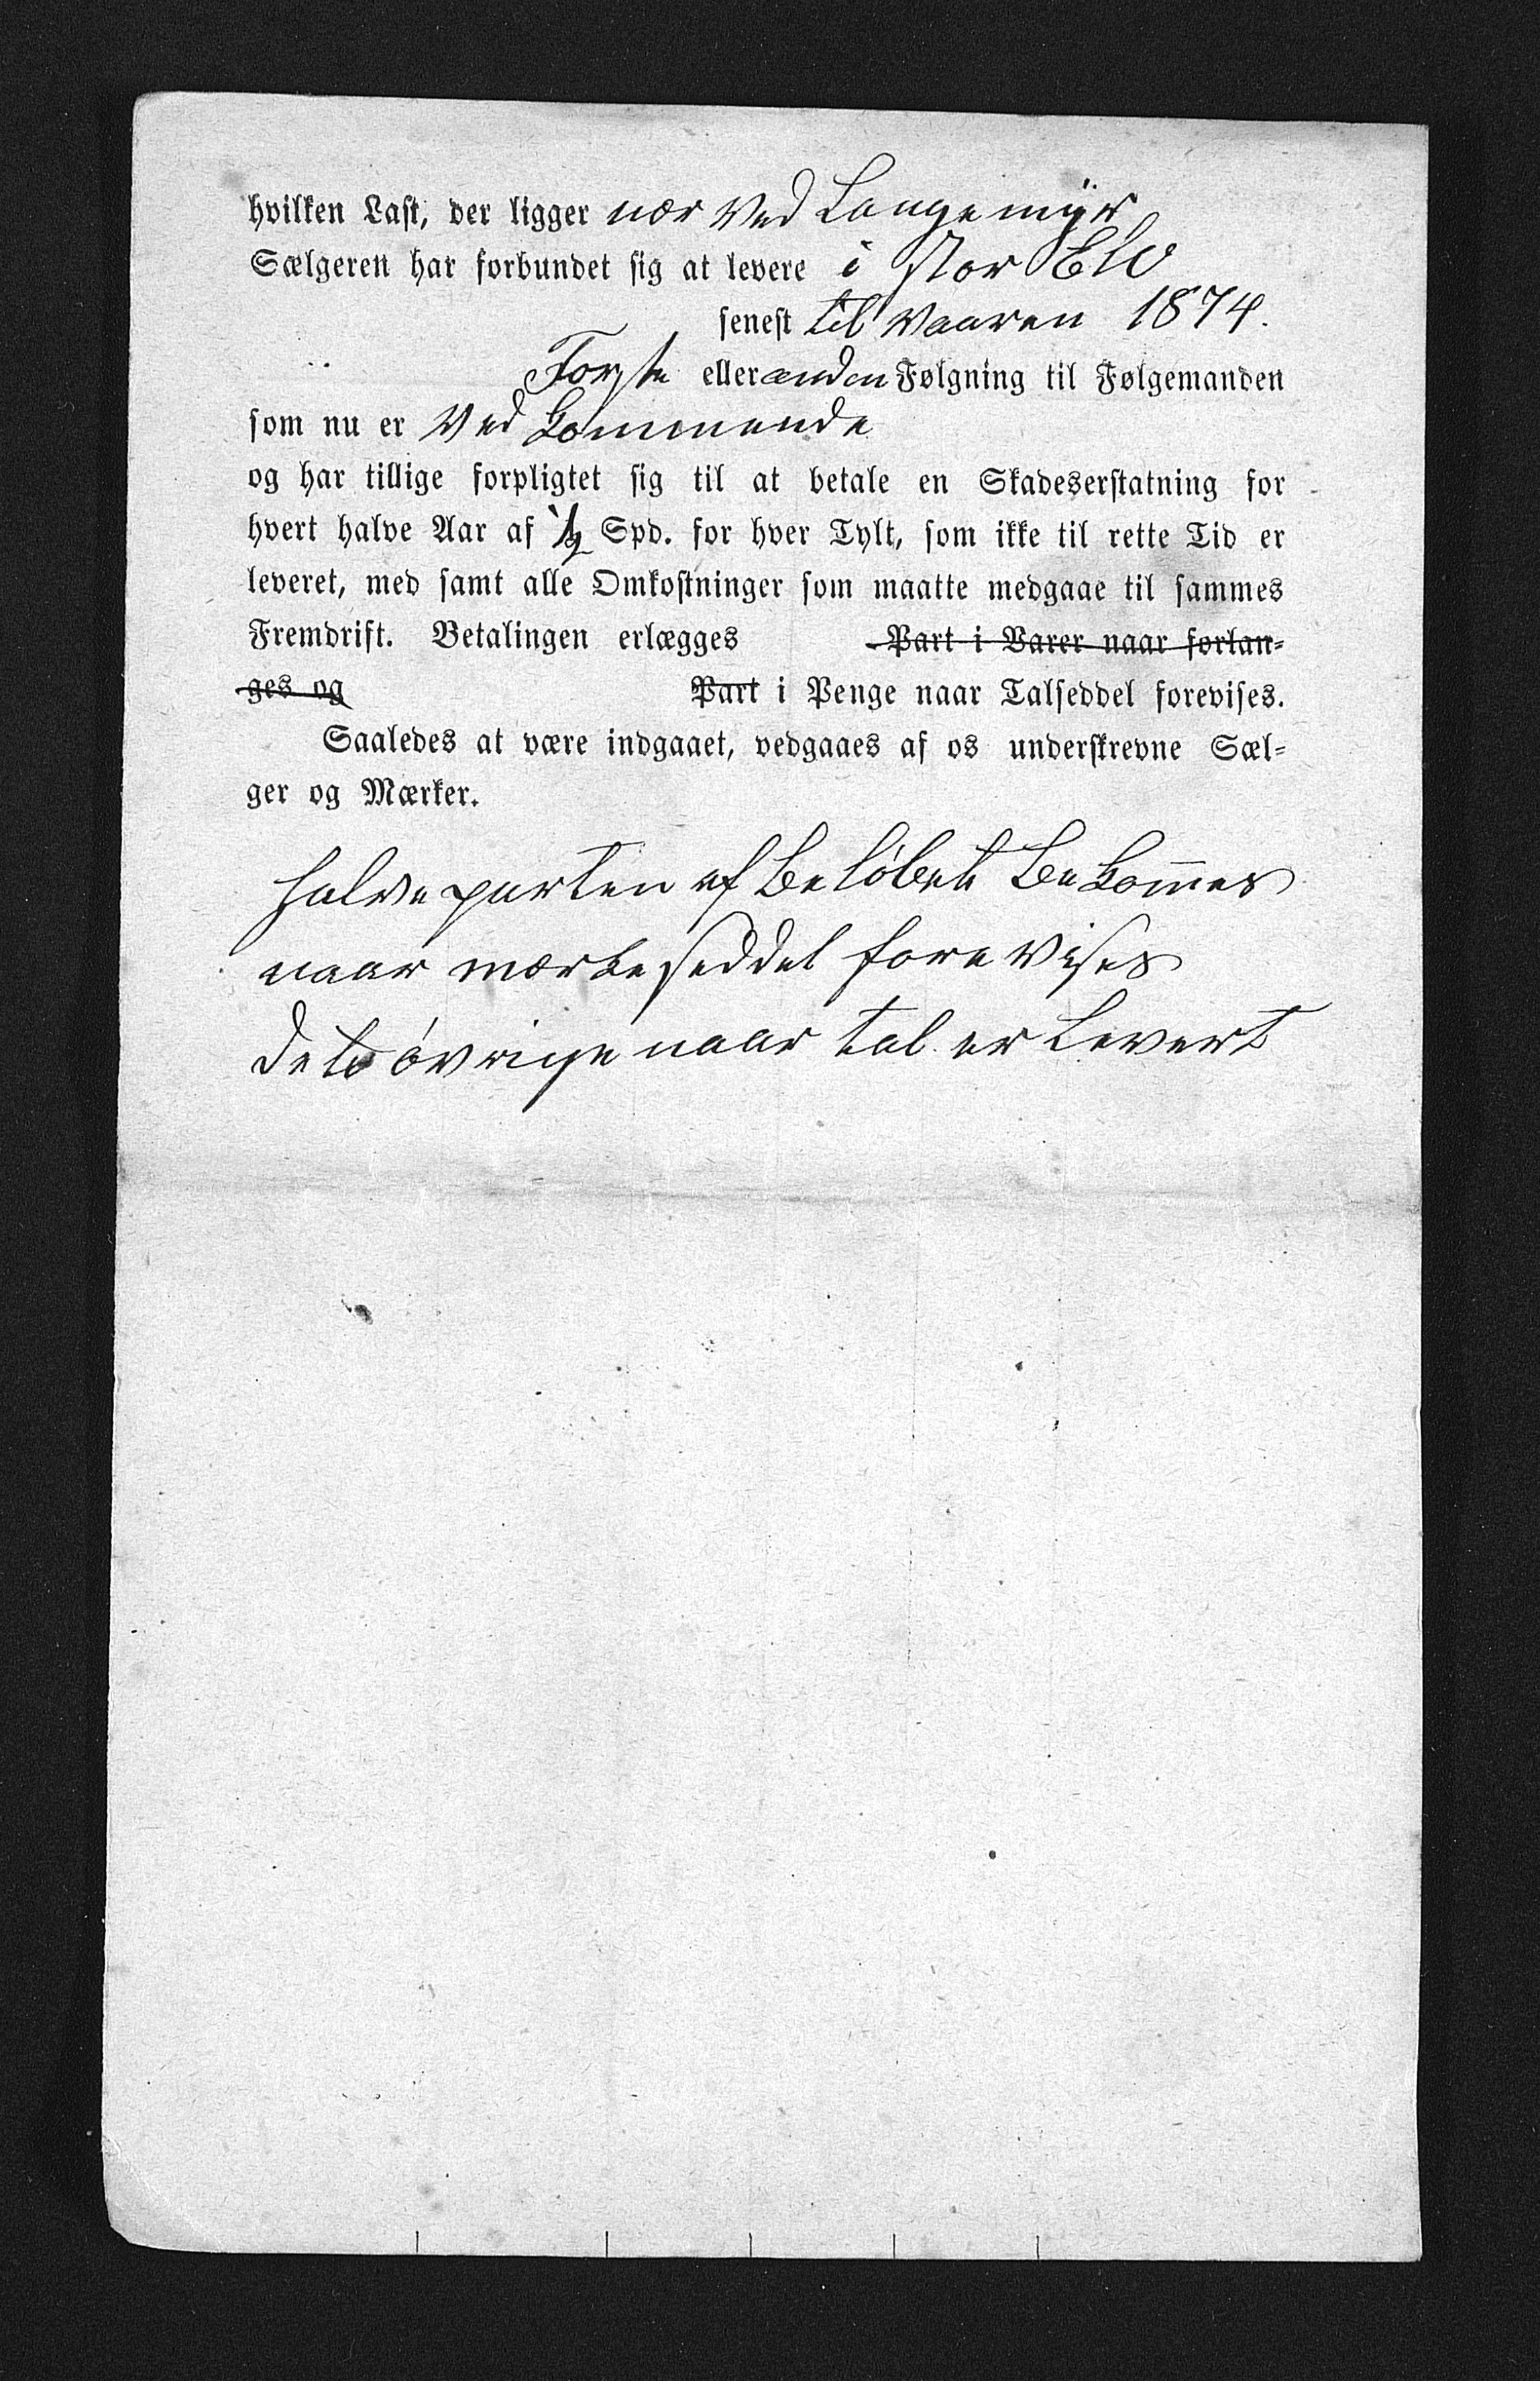 hvilken Last, der ligger nær ved Langemÿr
Sælgeren har forbundet sig at levere i stor Elv
senest til vaaren 1874.
Forste eller anden Følgning til Følgemanden
som nu er ved Kommende
og har tillige forpligtet sig til at betale en Skadeserstatning for
hvert halve Aar af ½ Spd. for hver Tylt, som ikke til rette Tid er
leveret, med samt alle Omkostninger som maatte medgaae til sammes
Fremdrift. Betalingen erlægges Part i Varer naar forlan-
ges og Part i Penge naar Talseddel forevises.
Saaledes at være indgaaet, vedgaaes af os underskrevne Sæl-
ger og Mærker.
halve parten af Beløbet Bekom̅es
naar mærkeseddel forevises
det óvrige naar tal er Levert